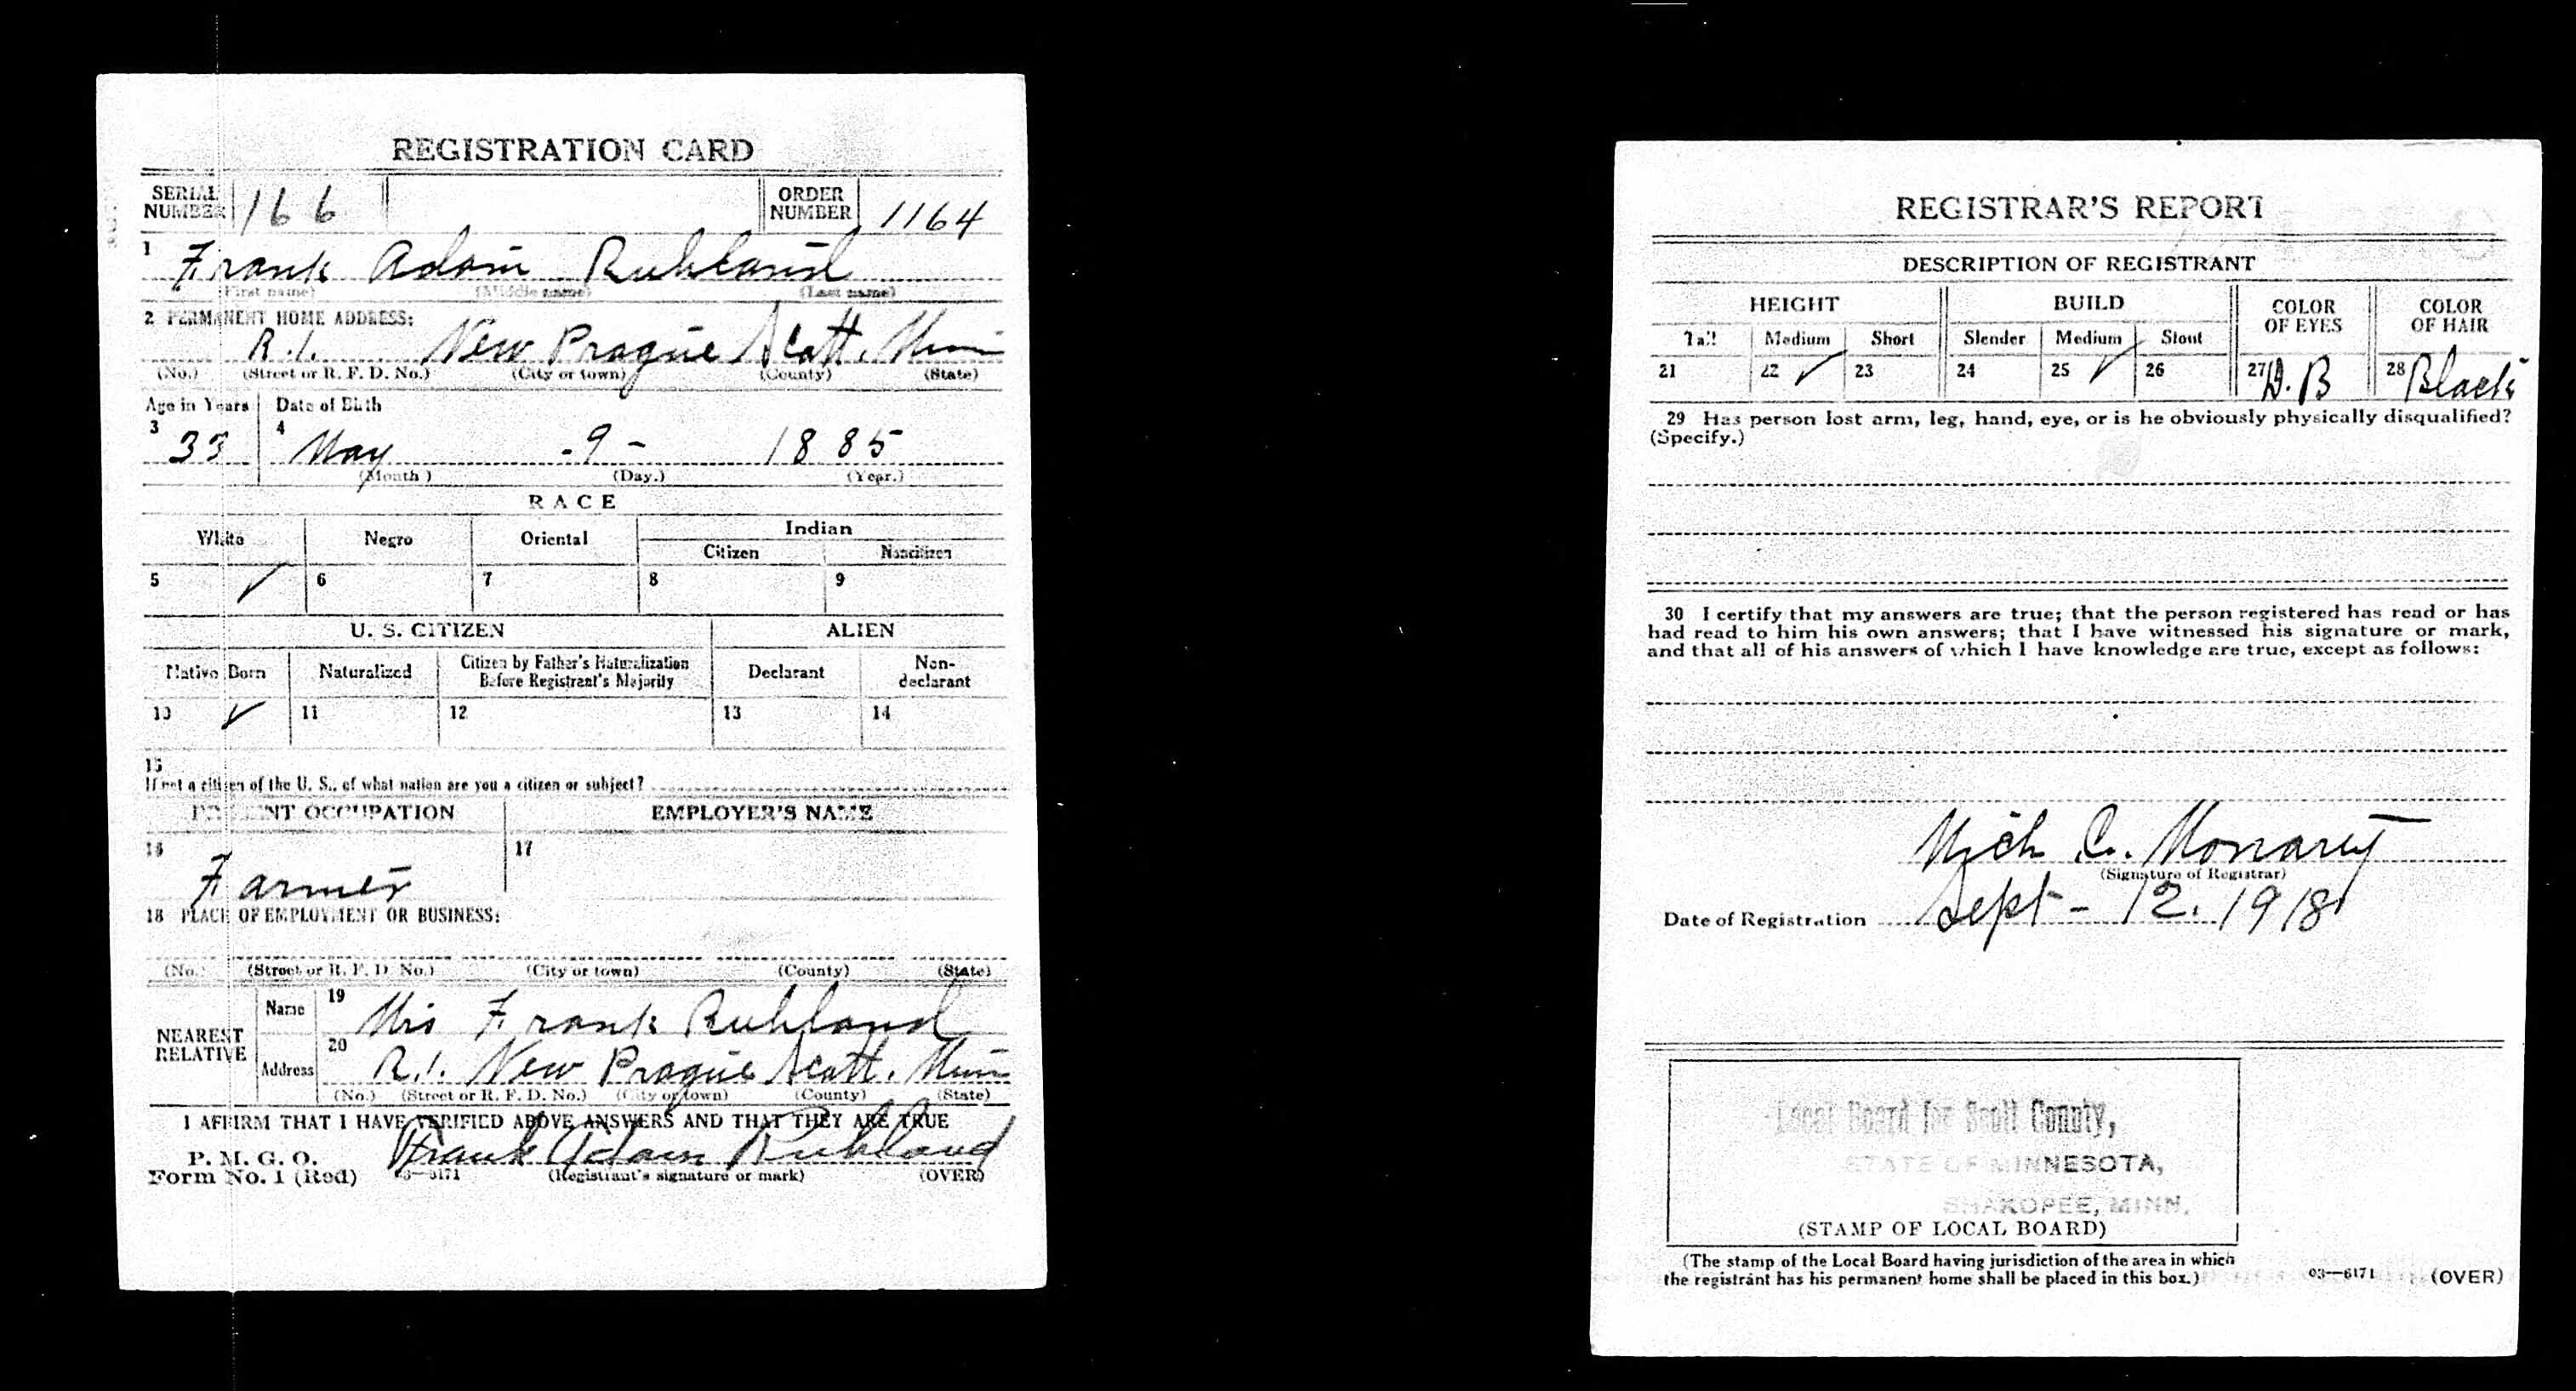 REGISTRATION CARD
SERIAL NUMBER 166 ORDER NUMBER 1164
1 Frank Adam Ruhland
(First name) (Middle name) (Last name)
2 PERMANENT HOME ADDRESS:
R.1. New Prague Scott. Minn
(No.) (Street or R. F. D. No.) (City or town) (County) (State)
Age in Years Date of Birth
3 33 4 May -9- 1885
(Month) (Day.) (Year.)
RACE
White Negro Oriental Indian
Citizen Noncitizen
5 ✓ 6 7 8 9
U. S. CITIZEN ALIEN
Native Born Naturalized Citizen by Father's Naturalization Before Registrant's Majority Declarant Non-declarant
10 ✓ 11 12 13 14
15
If not a citizen of the U. S., of what nation are you a citizen or subject?
PRESENT OCCUPATION EMPLOYER'S NAME
16 Farmer 17
18 PLACE OF EMPLOYMENT OR BUSINESS:
(No.) (Street or R. F. D. No.) (City or town) (County) (State)
NEAREST RELATIVE
Name 19 Mrs Frank Ruhland
Address 20 R.1. New Prague Scott. Minn
(No.) (Street or R. F. D. No.) (City or town) (County) (State)
I AFFIRM THAT I HAVE VERIFIED ABOVE ANSWERS AND THAT THEY ARE TRUE
P. M. G. O.
Form No. 1 (Red) 03—6171 Frank Adam Ruhland
(Registrant's signature or mark) (OVER)
REGISTRAR'S REPORT
DESCRIPTION OF REGISTRANT
HEIGHT BUILD COLOR OF EYES COLOR OF HAIR
Tall Medium Short Slender Medium Stout
21 22 ✓ 23 24 25 ✓ 26 27 D.B 28 Black
29 Has person lost arm, leg, hand, eye, or is he obviously physically disqualified?
(Specify.)
30 I certify that my answers are true; that the person registered has read or has
had read to him his own answers; that I have witnessed his signature or mark,
and that all of his answers of which I have knowledge are true, except as follows:
Mich C.
(Signature of Registrar)
Date of Registration Sept - 12. 1918
Local Board for Scott County,
STATE OF MINNESOTA,
SHAKOPEE, MINN.
(STAMP OF LOCAL BOARD)
(The stamp of the Local Board having jurisdiction of the area in which
the registrant has his permanent home shall be placed in this box.)
03—6171 (OVER)